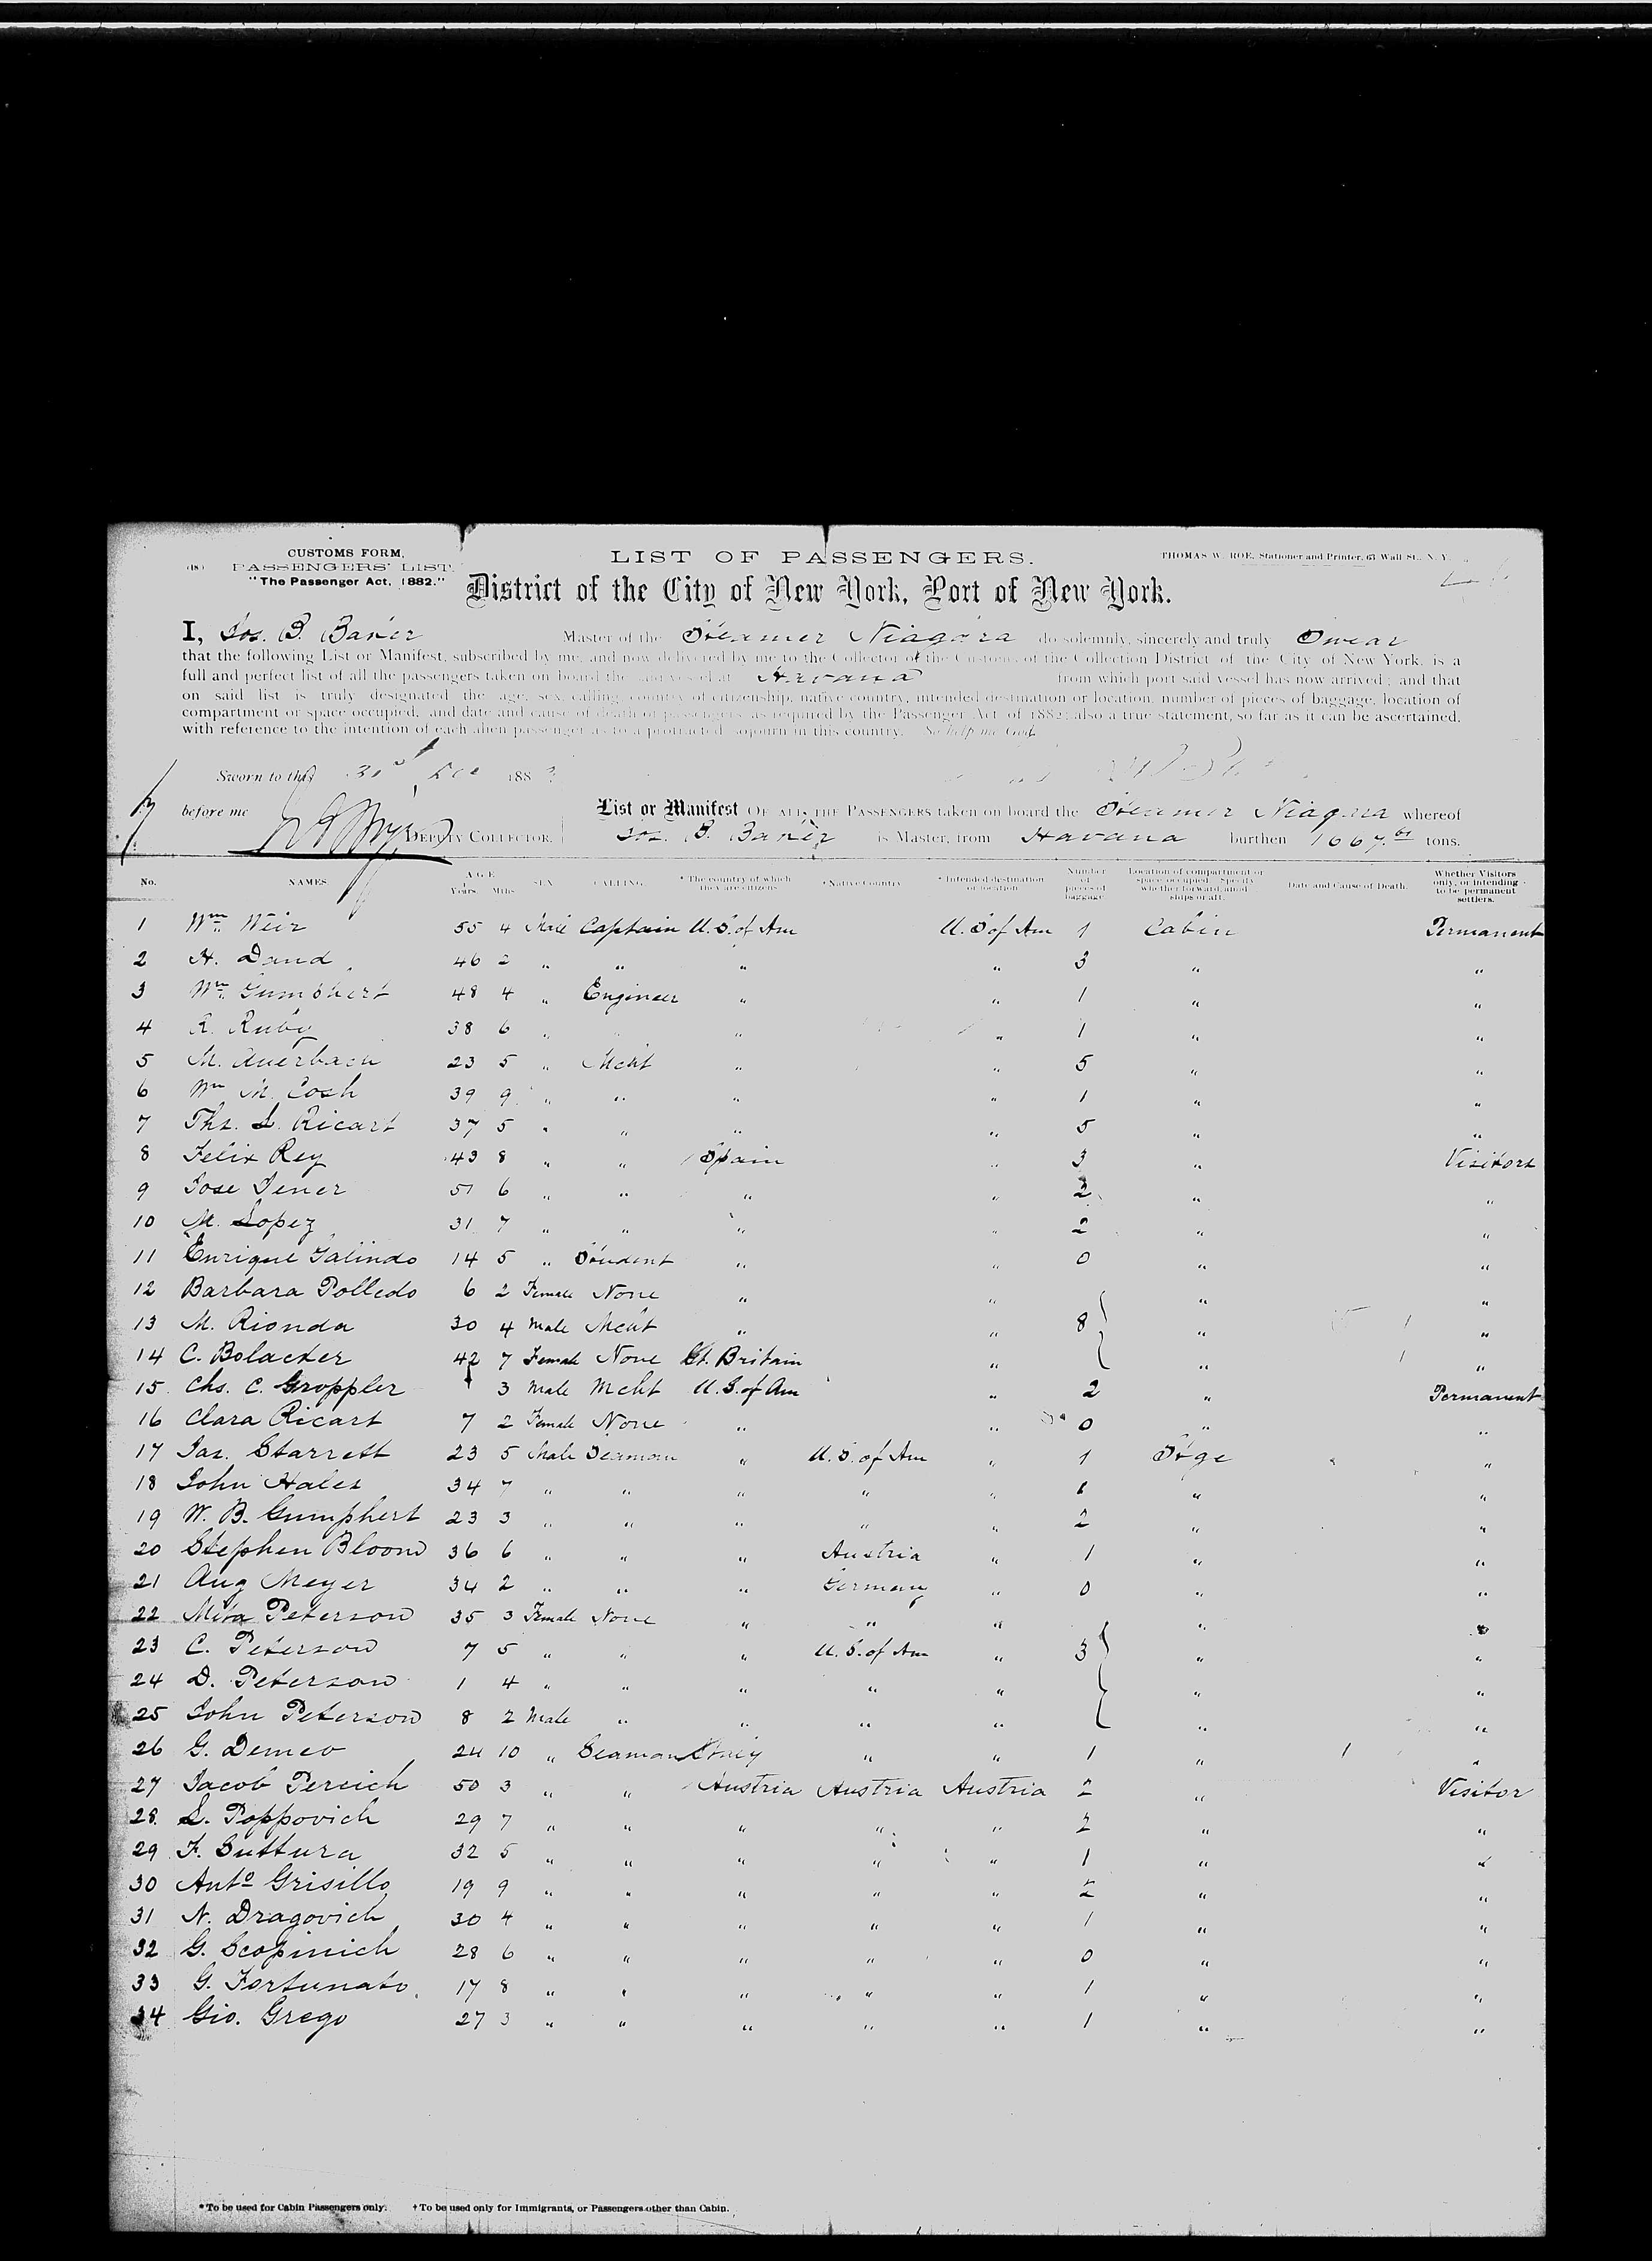 CUSTOMS FORM,
PASSENGERS' LIST.
"The Passenger Act, 1882."
LIST OF PASSENGERS.
THOMAS W. ROE, Stationer and Printer, 63 Wall St., N.Y.
District of the City of New York, Port of New York.
I, Jos. B. Baker Master of the Steamer Niagara do solemnly, sincerely and truly Swear
that the following List or Manifest, subscribed by me, and now delivered by me to the Collector of the Customs of the Collection District of the City of New York, is a
full and perfect list of all the passengers taken on board the said vessel at Havana from which port said vessel has now arrived; and that
on said list is truly designated the age, sex, calling, country of citizenship, native country, intended destination or location, number of pieces of baggage, location of
compartment or space occupied, and date and cause of death of passengers, as required by the Passenger Act of 1882; also a true statement, so far as it can be ascertained,
with reference to the intention of each alien passenger as to a protracted sojourn in this country. So help me God.
Sworn to this 188
before me DEPUTY COLLECTOR.
List or Manifest OF ALL THE PASSENGERS taken on board the Steamer Niagara whereof
Jos. B. Baker is Master, from Havana burthen 1667 tons.
No. NAMES. AGE Years. Mths. SEX. CALLING. * The country of which they are citizens. * Native Country. * Intended destination or location. Number of pieces of baggage. Location of compartment or space occupied. Specify whether forward, amidships or aft. Date and Cause of Death. Whether Visitors only, or intending to be permanent settlers.
1 Wm Weir 55 4 Male Captain U.S. of Am U.S of Am 1 Cabin Permanent
2 H. Dand 46 2 " " " " 3 " "
3 Wm Gumphert 48 4 " Engineer " " 1 " "
4 R. Ruby 38 6 " " " 1 " "
5 M. Auerbach 23 5 " Mcht " " 5 " "
6 Wm M. Cosh 39 9 " " " " 1 " "
7 Ths. L. Ricart 37 5 " " " " 5 " "
8 Felix Rey 43 8 " " Spain " 3 " Visitors
9 Jose Jener 51 6 " " " " 2 " "
10 M. Lopez 31 7 " " " " 2 " "
11 Enrique Galindo 14 5 " Student " " 0 " "
12 Barbara Polledo 6 2 Female None " " " "
13 M. Rionda 30 4 Male Mcht " " 8 " "
14 C. Bolacker 42 7 Female None Gt. Britain " " "
15 Chs. C. Groppler 3 Male Mcht U.S. of Am " 2 " Permanent
16 Clara Ricart 7 2 Female None " " 0 " "
17 Jas. Starrett 23 5 Male Seaman " U.S. of Am " 1 Stge "
18 John Hales 34 7 " " " " " 1 " "
19 W. B. Gumphert 23 3 " " " " " 2 " "
20 Stephen Bloom 36 6 " " " Austria " 1 " "
21 Aug Meyer 34 2 " " " Germany " 0 " "
22 Mita Peterson 35 3 Female None " " " " "
23 C. Peterson 7 5 " " " U.S. of Am " 3 " "
24 D. Peterson 1 4 " " " " " " "
25 John Peterson 8 2 Male " " " " " "
26 G. Demeo 24 10 " Seaman Italy " " 1 " "
27 Jacob Pereich 50 3 " " Austria Austria Austria 2 " Visitor
28 L. Poppovich 29 7 " " " " " 2 " "
29 F. Suttura 32 5 " " " " " 1 " "
30 Anto Grisillo 19 9 " " " " " 2 " "
31 N. Dragovich 30 4 " " " " " 1 " "
32 G. Scopinich 28 6 " " " " " 0 " "
33 G. Fortunato 17 8 " " " " " 1 " "
34 Gio. Grego 27 3 " " " " " 1 " "
* To be used for Cabin Passengers only. † To be used only for Immigrants, or Passengers other than Cabin.